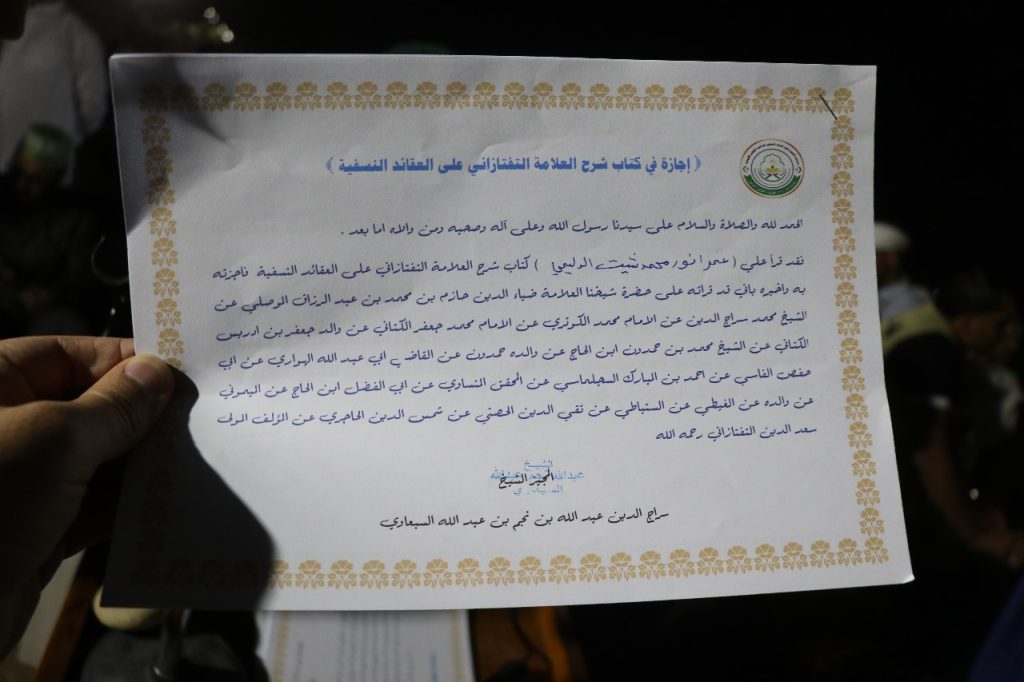 ﴿ إجازة في كتاب شرح العلامة التفتازاني على العقائد النسفية ﴾
الحمد لله والصلاة والسلام على سيدنا رسول الله وعلى آله وصحبه ومن والاه اما بعد .
فقد قرأ علي ( عمر انور محمد شيت الدليمي ) كتاب شرح العلامة التفتازاني على العقائد النسفية فاجزته
به واخبره باني قد قراته على حضرة شيخنا العلامة ضياء الدين حازم بن محمد بن عبد الرزاق الموصلي عن
الشيخ محمد سراج الدين عن الامام محمد الكوثري عن الامام محمد جعفر الكتاني عن والد جعفر بن ادريس
الكتاني عن الشيخ محمد بن حمدون ابن الحاج عن والده حمدون عن القاضي ابي عبد الله الهواري عن ابي
حفص الفاسي عن احمد بن المبارك السجلماسي عن المحقق المنساوي عن ابي الفضل ابن الحاج عن اليموني
عن والده عن الغيطي عن السنباطي عن تقي الدين الحصني عن شمس الدين الحاجري عن المؤلف المولى
سعد الدين التفتازاني رحمه الله
الشيخ
المجيز الشيخ
سراج الدين عبد الله بن نجم بن عبد الله السبعاوي